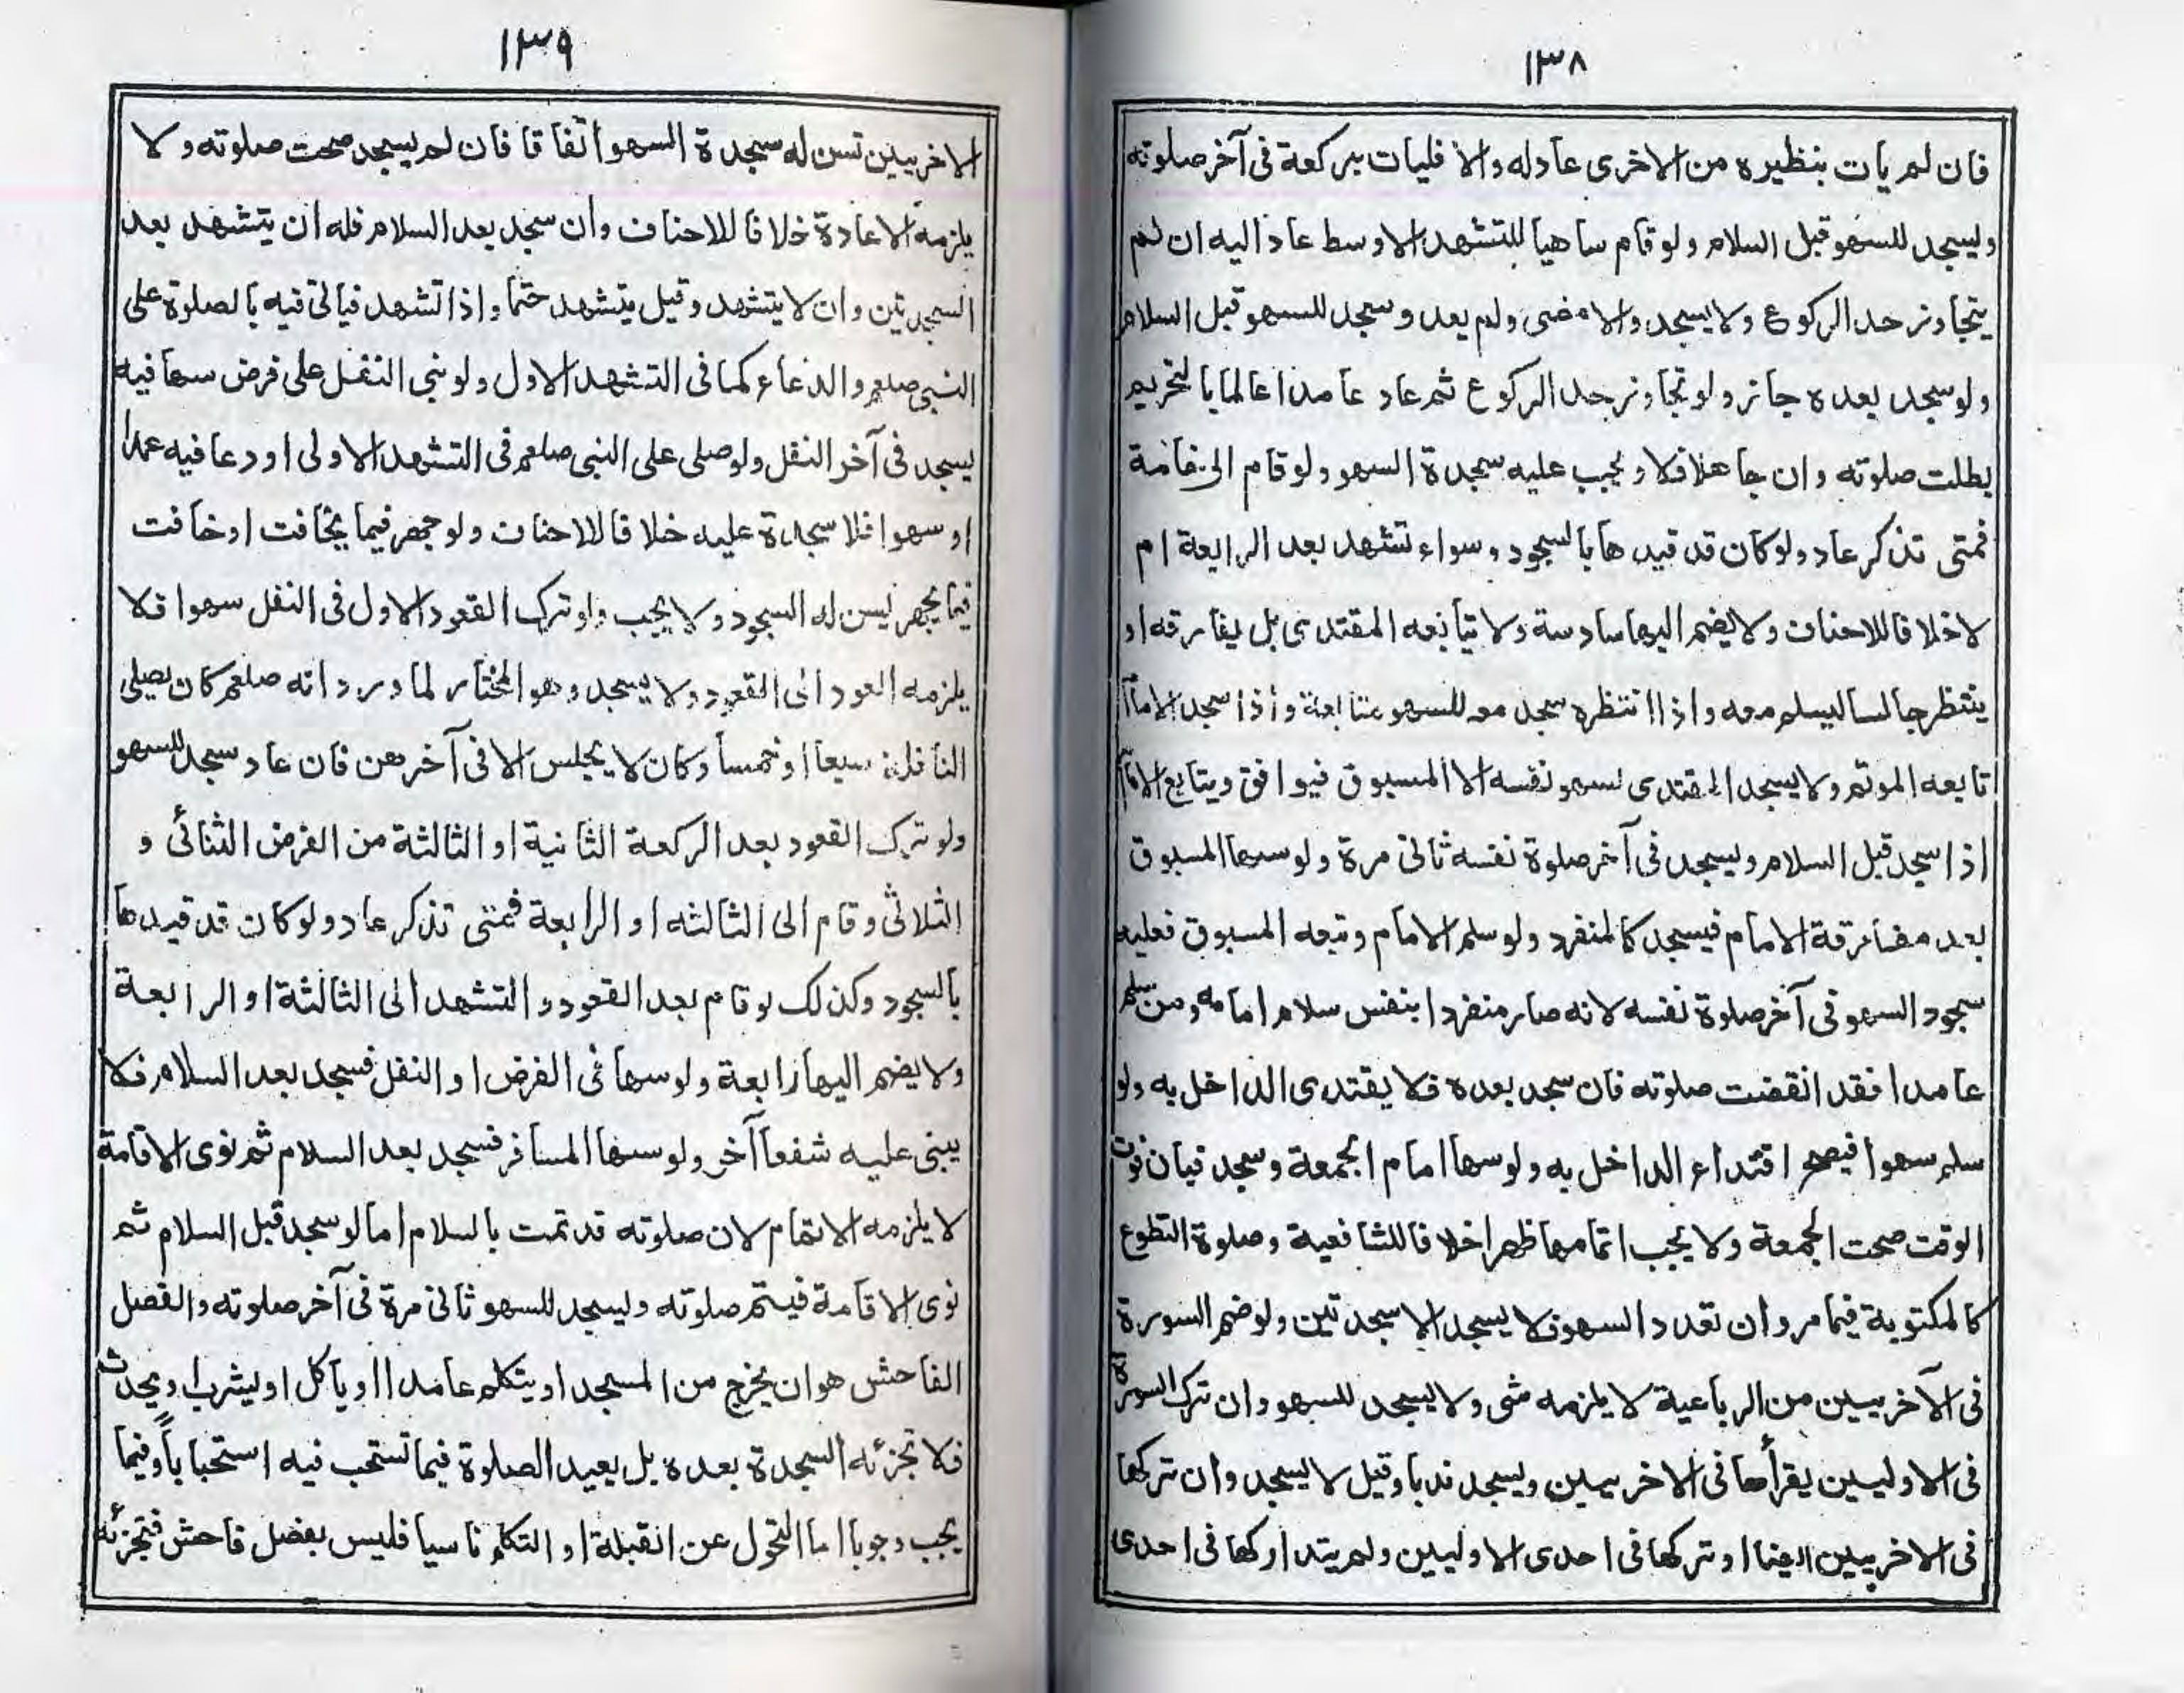 ١٣٨
فان لم يات بنظيره من الاخرى عادله والا فليات بركعة فى آخر صلوته
وليسجد للسهو قبل السلام ولو قام ساهيا للتشهد الاوسط عاد اليه ان لم
يتجاوز حد الركوع ولا يسجد والا مضى ولم يعد وسجد للسهو قبل السلام
ولو سجد بعده جائز ولو تجاوز حد الركوع ثم عاد عامدا عالما بالتحريم
بطلت صلوته وان جاهلا فلا ويجب عليه سجدة السهو ولو قام الى خامسة
فمتى تذكر عاد ولو كان قد قيدها بالسجود وسواء تشهد بعد الرابعة ام
لا خلافا للاحناف ولا يضم اليها سادسة ولا يتابعه المقتدى بل يفارقه او
ينتظر جالسا ليسلم معه واذا انتظره سجد معه للسهو متابعة واذا سجد الامام
تابعه الموتم ولا يسجد المقتدى لسهو نفسه الا المسبوق فيوافق ويتابع الامام
اذا سجد قبل السلام ويسجد فى آخر صلوة نفسه ثانى مرة ولو سها المسبوق
بعد مفارقة الامام فيسجد كالمنفرد ولو سلم الامام وتبعه المسبوق فعليه
سجود السهو فى آخر صلوة نفسه لانه صار منفردا بنفس سلام امامه ومن سلم
عامدا فقد انقضت صلوته فان سجد بعده فلا يقتدى الداخل به ولو
سلم سهوا فيصح اقتداء الداخل به ولو سها امام الجمعة وسجد فبان فوت
الوقت صحت الجمعة ولا يجب اتمامها ظهرا خلافا للشافعية وصلوة التطوع
كالمكتوبة فيما مر وان تعدد السهو فلا يسجد الا سجدتين ولو ضم السورة
فى الآخريين من الرباعية لا يلزمه شى ولا يسجد للسهو وان ترك السورة
فى الاوليين يقرأها فى الاخريين ويسجد ندبا وقيل لا يسجد وان تركها
فى الاخريين ايضا او تركها فى احدى الاوليين ولم يتداركها فى احدى
١٣٩
الاخريين تسن له سجدة السهو اتفاقا فان لم يسجد صحت صلوته ولا
يلزمه الاعادة خلافا للاحناف وان سجد بعد السلام فله ان يتشهد بعد
السجدتين وان لا يتشهد وقيل يتشهد حتما واذا تشهد فياتى فيه بالصلوة على
النبى صلعم والدعاء كما فى التشهد الاول ولو بنى النفل على فرض سها فيه
يسجد فى آخر النفل ولو صلى على النبى صلعم فى التشهد الاولى او دعا فيه عمدا
او سهوا فلا سجدة عليه خلافا للاحناف ولو جهر فيما يخافت او خافت
فيما يجهر ليسن له السجود ولا يجب ولو ترك القعود الاول فى النفل سهوا فلا
يلزمه العود الى القعود ولا يسجد وهو المختار لما ورد انه صلعم كان يصلى
النافلة سبعا او خمسا وكان لا يجلس الا فى آخرهن فان عاد سجد للسهو
ولو ترك القعود بعد الركعة الثانية او الثالثة من الفرض الثنائى و
الثلاثى وقام الى الثالثه او الرابعة فمتى تذكر عاد ولو كان قد قيدها
بالسجود وكذلك لو قام بعد القعود والتشهد الى الثالثة او الرابعة
ولا يضم اليها رابعة ولو سها فى الفرض او النفل فسجد بعد السلام فلا
يبنى عليه شفعا آخر ولو سها المسافر فسجد بعد السلام ثم نوى الاقامة
لا يلزمه الاتمام لان صلوته قد تمت بالسلام اما لو سجد قبل السلام ثم
نوى الاقامة فيتم صلوته وليسجد للسهو ثانى مرة فى آخر صلوته والفصل
الفاحش هو ان يخرج من المسجد او يتكلم عامدا او ياكل او ليشرب او يحدث
فلا تجزئه السجدة بعده بل يعيد الصلوة فيما تستحب فيه استحبابا وفيما
يجب وجوبا اما التحول عن القبلة او التكلم ناسيا فليس بفصل فاحش فتجزئه